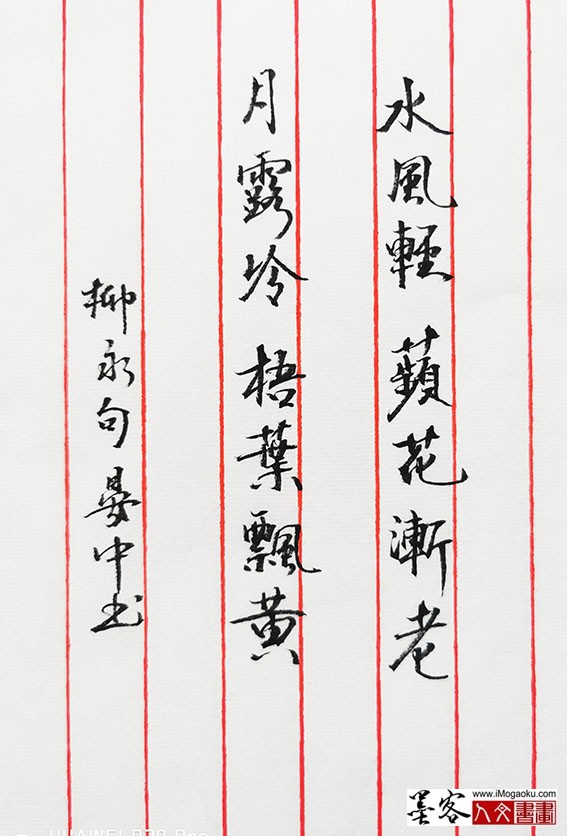 水風輕 蘋花漸老
月露冷 梧葉飄黃
柳永句 晏中书
墨客
www.iMogaoku.com
人文書畫
HUAWEI